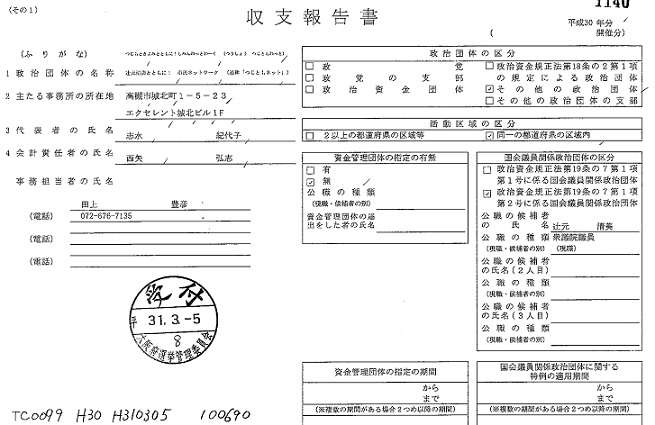 (その1)
1140
収支報告書
平成30年分
( 開催分)
(ふりがな)
1 政治団体の名称
辻元清美とともに!市民ネットワーク (通称「つじともネット」)
2 主たる事務所の所在地
高槻市城北町1-5-23
エクセレント城北ビル1F
3 代表者の氏名
志水 紀代子
4 会計責任者の氏名
西矢 弘志
事務担当者の氏名
田上 豊彦
(電話)
072-676-7135
(電話)
(電話)
政治団体の区分
政党
政党の支部
政治資金団体
政治資金規正法第18条の2第1項
の規定による政治団体
その他の政治団体
その他の政治団体の支部
活動区域の区分
2以上の都道府県の区域等
同一の都道府県の区域内
資金管理団体の指定の有無
有
無
公職の種類
(現職・候補者の別)
資金管理団体の届
出をした者の氏名
国会議員関係政治団体の区分
政治資金規正法第19条の7第1項
第1号に係る国会議員関係政治団体
政治資金規正法第19条の7第1項
第2号に係る国会議員関係政治団体
公職の候補者
の氏名 辻元 清美
公職の種類 衆議院議員
(現職・候補者の別) (現職)
公職の候補者
の氏名(2人目)
公職の種類
(現職・候補者の別)
公職の候補者
の氏名(3人目)
公職の種類
(現職・候補者の別)
受付
平 31.3.-5
8
大阪府選挙管理委員会
資金管理団体の指定の期間
から
まで
(※複数の期間がある場合2つめ以降の期間)
国会議員関係政治団体に関する
特例の適用期間
から
まで
(※複数の期間がある場合2つめ以降の期間)
TC0099 H30 H310305 100690